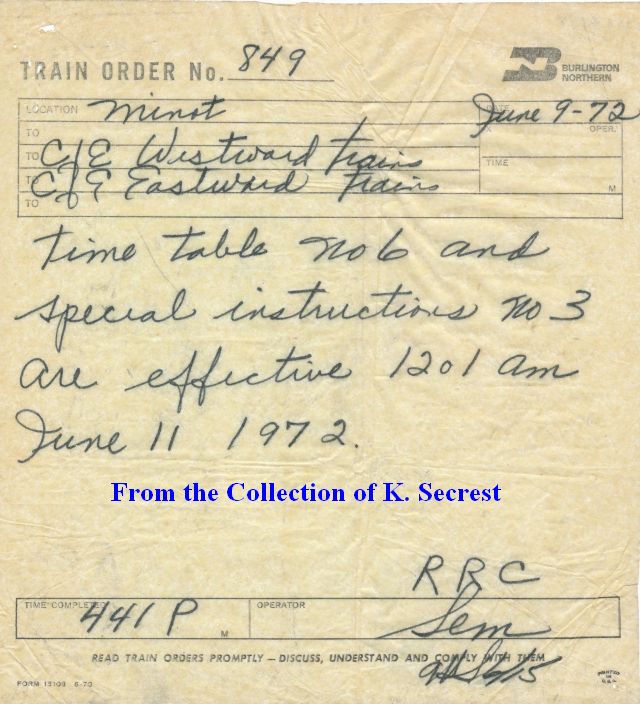 TRAIN ORDER No. 849
BURLINGTON
NORTHERN
LOCATION Minot
DATE June 9-72
TO
OPER.
TO C/E Westward Trains
TIME
TO C/E Eastward Trains
M
TO
Time table No 6 and
special instructions No 3
are effective 1201 am
June 11 1972.
From the Collection of K. Secrest
RRC
TIME COMPLETED 441 P M
OPERATOR Sem
READ TRAIN ORDERS PROMPTLY – DISCUSS, UNDERSTAND AND COMPLY WITH THEM
FORM 15103 6-70
PRINTED
IN
U.S.A.